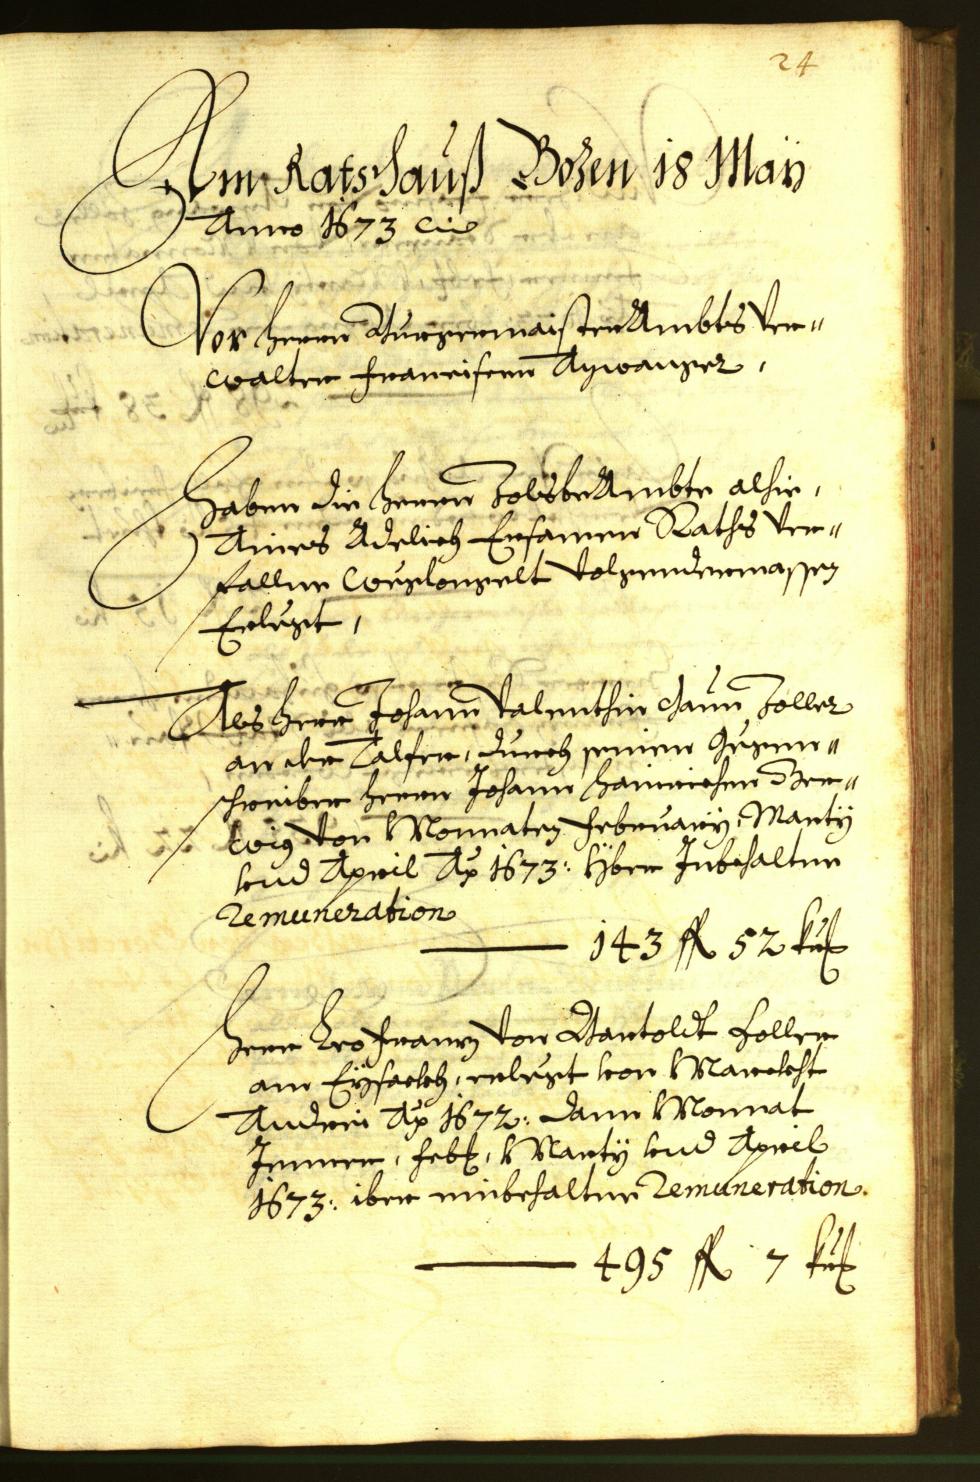 24
Am Ratshauß Bozen 18 Maÿ
Anno 1673
Vor herrn Burgermaister Ambts Ver¬
walter Francißcen Aÿwanger,
Haben die herrn Zolsbeambte alhie,
Aines Adelich Ersamen Raths ver¬
fallne Weglongelt volgendermassen
Erlegt,
Als herr Johann Valenthin Zoller
an der Talfer, durch seinen Gegen¬
schreiber herrn Johann Hainrichen
von Monnaten February, Marty
und April Ao 1673: yber Inbehaltne
Remuneration
143 fl 52 kr
Herr Leo Franz von Zoller
am Eÿsackh, erlegt von Marckht
Andrei Ao 1672: dann Monnat
Jenner, Feb:, Marty und April
1673: iber einbehaltne Remuneration.
495 fl 7 kr